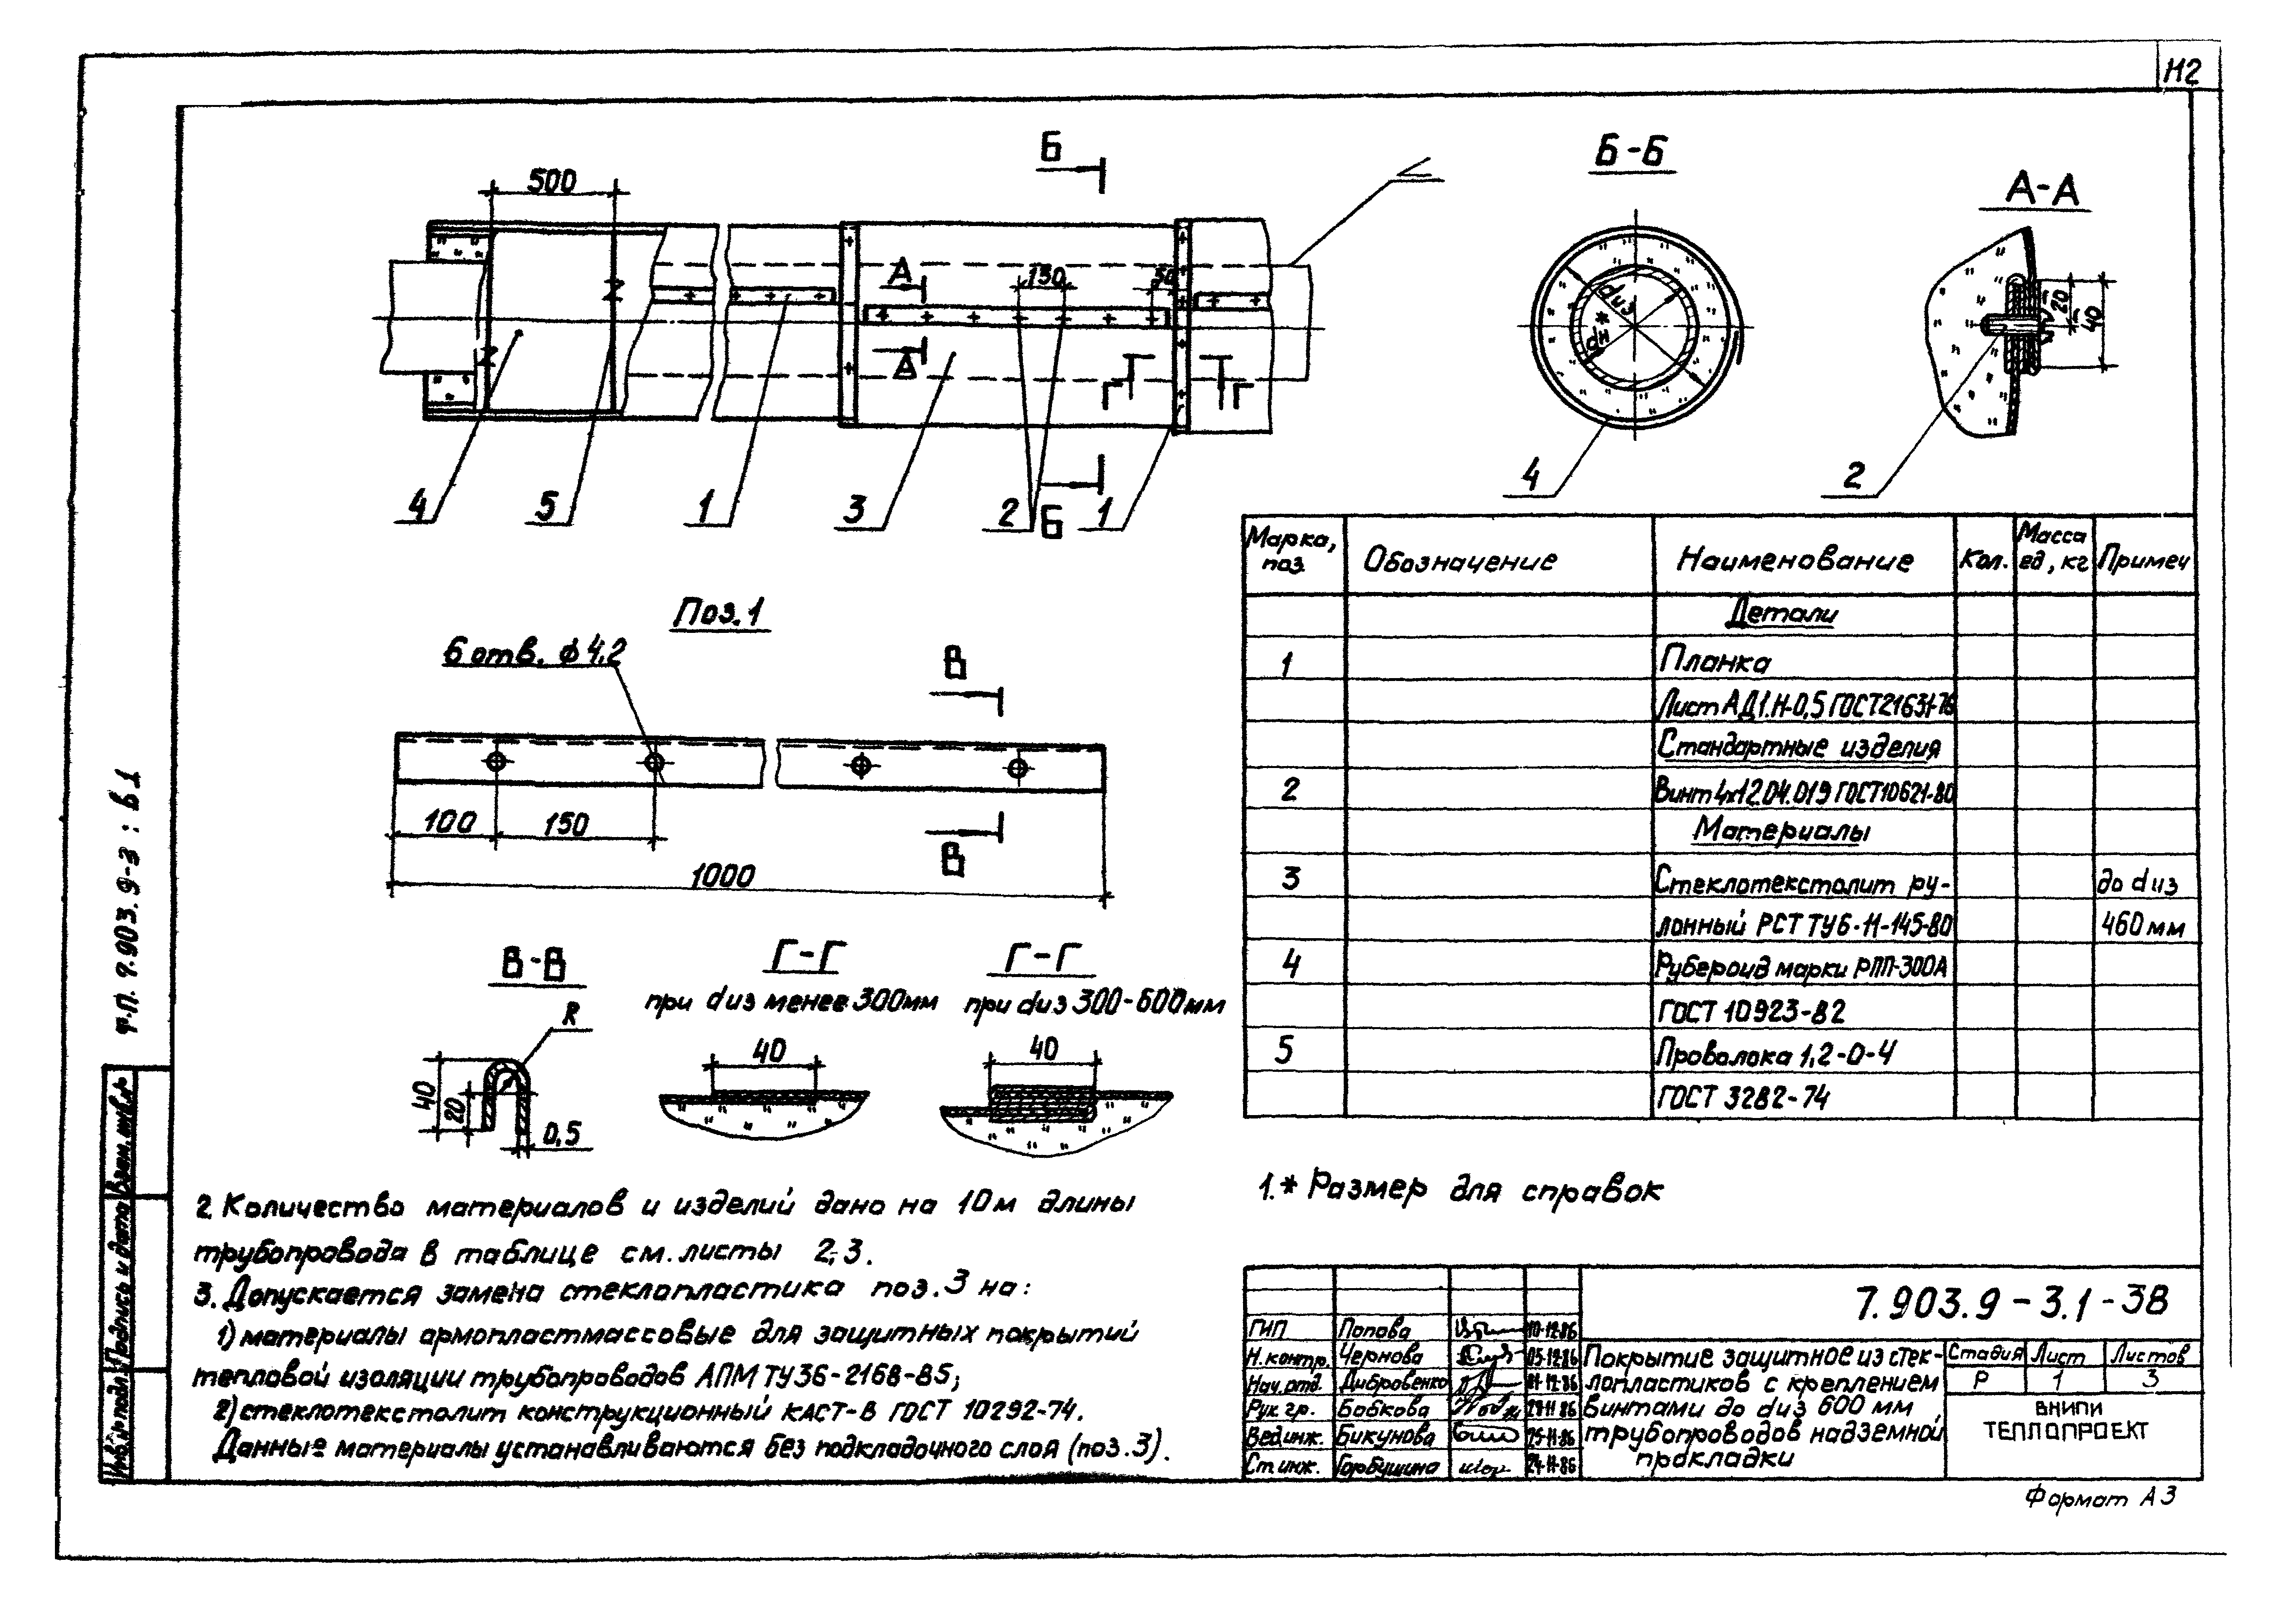 Н2
Б
Б-Б
А-А
500
А
150
50
А
Г
Г
dиз
dн*
20
40
4
5
1
3
2
Б
1
4
2
Поз.1
6 отв. ϕ4,2
В
100
150
В
1000
В-В
R
40
20
0,5
Г-Г
при dиз менее 300мм
40
Г-Г
при dиз 300-600мм
40
Марка, поз.
Обозначение
Наименование
Кол.
Масса ед, кг
Примеч
Детали
1 Планка
Лист АД1.Н-0,5 ГОСТ21631-76
Стандартные изделия
2 Винт 4х12.04.019 ГОСТ10621-80
Материалы
3 Стеклотекстолит ру- до dиз
лонный РСТ ТУ6-11-145-80 460 мм
4 Рубероид марки РПП-300А
ГОСТ 10923-82
5 Проволока 1,2-0-4
ГОСТ 3282-74
1.* Размер для справок
2. Количество материалов и изделий дано на 10м длины
трубопровода в таблице см. листы 2,3.
3. Допускается замена стеклопластика поз.3 на:
1) материалы армопластмассовые для защитных покрытий
тепловой изоляции трубопроводов АПМ ТУ36-2168-85;
2) стеклотекстолит конструкционный КАСТ-В ГОСТ 10292-74.
Данные материалы устанавливаются без подкладочного слоя (поз.3).
7.903.9-3.1-38
ГИП Попова 10-12-86
Н.контр. Чернова 05-12-86
Нач.отд. Дибровенко
Рук.гр. Бобкова
Вед.инж. Бикунова 25-11-86
Ст.инж. Горбушина 24-11-86
Покрытие защитное из стек-
лопластиков с креплением
винтами до dиз 600 мм
трубопроводов надземной
прокладки
Стадия Лист Листов
Р 1 3
ВНИПИ
ТЕПЛОПРОЕКТ
Формат А3
Ф.П. 7.903.9-3 : в 1
Взам. инв.№
Подпись и дата
Инв.№ подл.